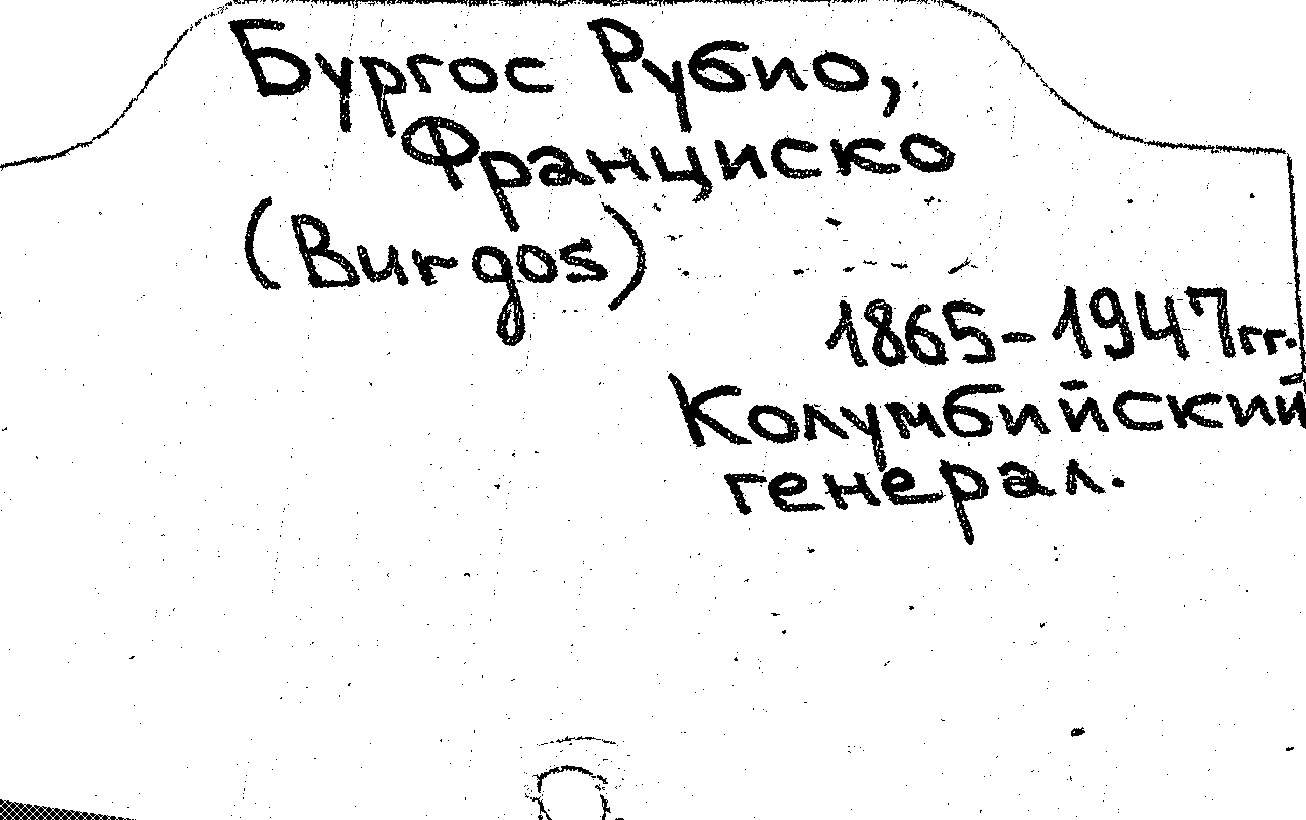 Бургос Рубио,
Франциско
(Burgos)
1865-1947гг.
Колумбийский
генерал.